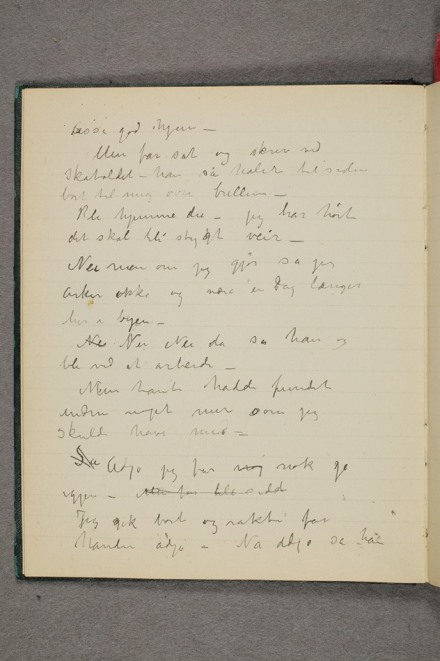 god hjem –
Men far sat og skrev ved
Skatoldet – han så halvt til siden
bort til mig over brillen –
Bli hjemme du – jeg har hørt
det skal bli stygt veir –
Nei men om jeg gjør sa jeg
ikke og være en dag længer
her i byen –
Nei Nei da sa han og
ble ved at arbeide –
Men hadde fundet
endnu noget mer som jeg
skulde have med –
Adjø jeg får nok gå
igjen –
Jeg gik bort og rakte far
hånden adjø – Na adjø sa han